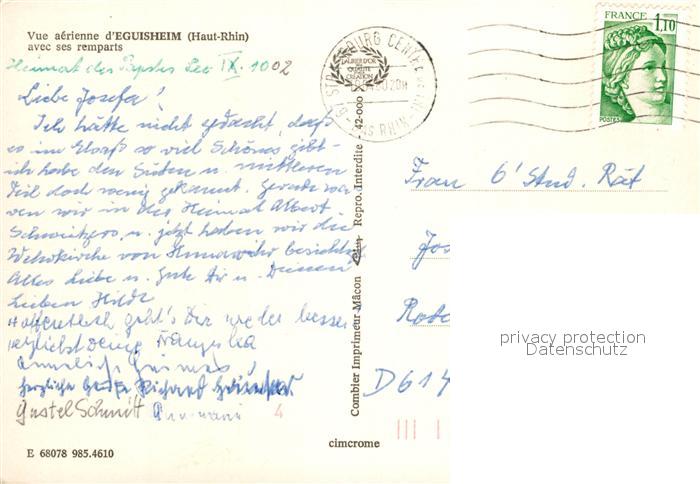 Vue aérienne d'EGUISHEIM (Haut-Rhin)
avec ses remparts
Heimat des Papstes Leo IX. 1002
Liebe Josefa!
Ich hätte nicht gedacht, daß
es im Elsaß so viel Schönes gibt -
ich habe den Süden u. mittleren
Teil doch wenig gekannt. Gerade wa-
ren wir in der Heimat Albert
Schweitzers u. jetzt haben wir die
Wehrkirche von Hunawihr besichtigt
Alles Liebe u. Gute Dir u. Deinen
Lieben Hilde
Hoffentlich geht's Dir wieder besser
herzlichst Deine
herzliche Grüße Richard
Gustel Schmitt
4
E 68078 985.4610
cimcrome
Combier Imprimeur Mâcon Repro. Interdite - 42-000
LAURIER D'OR
DE LA
QUALITE
CREATION
STRASBOURG CENTRE
BAS RHIN
FRANCE
1,10
POSTES
Frau O'Stud. Rät
Jos
Rote
D 614
privacy protection
Datenschutz